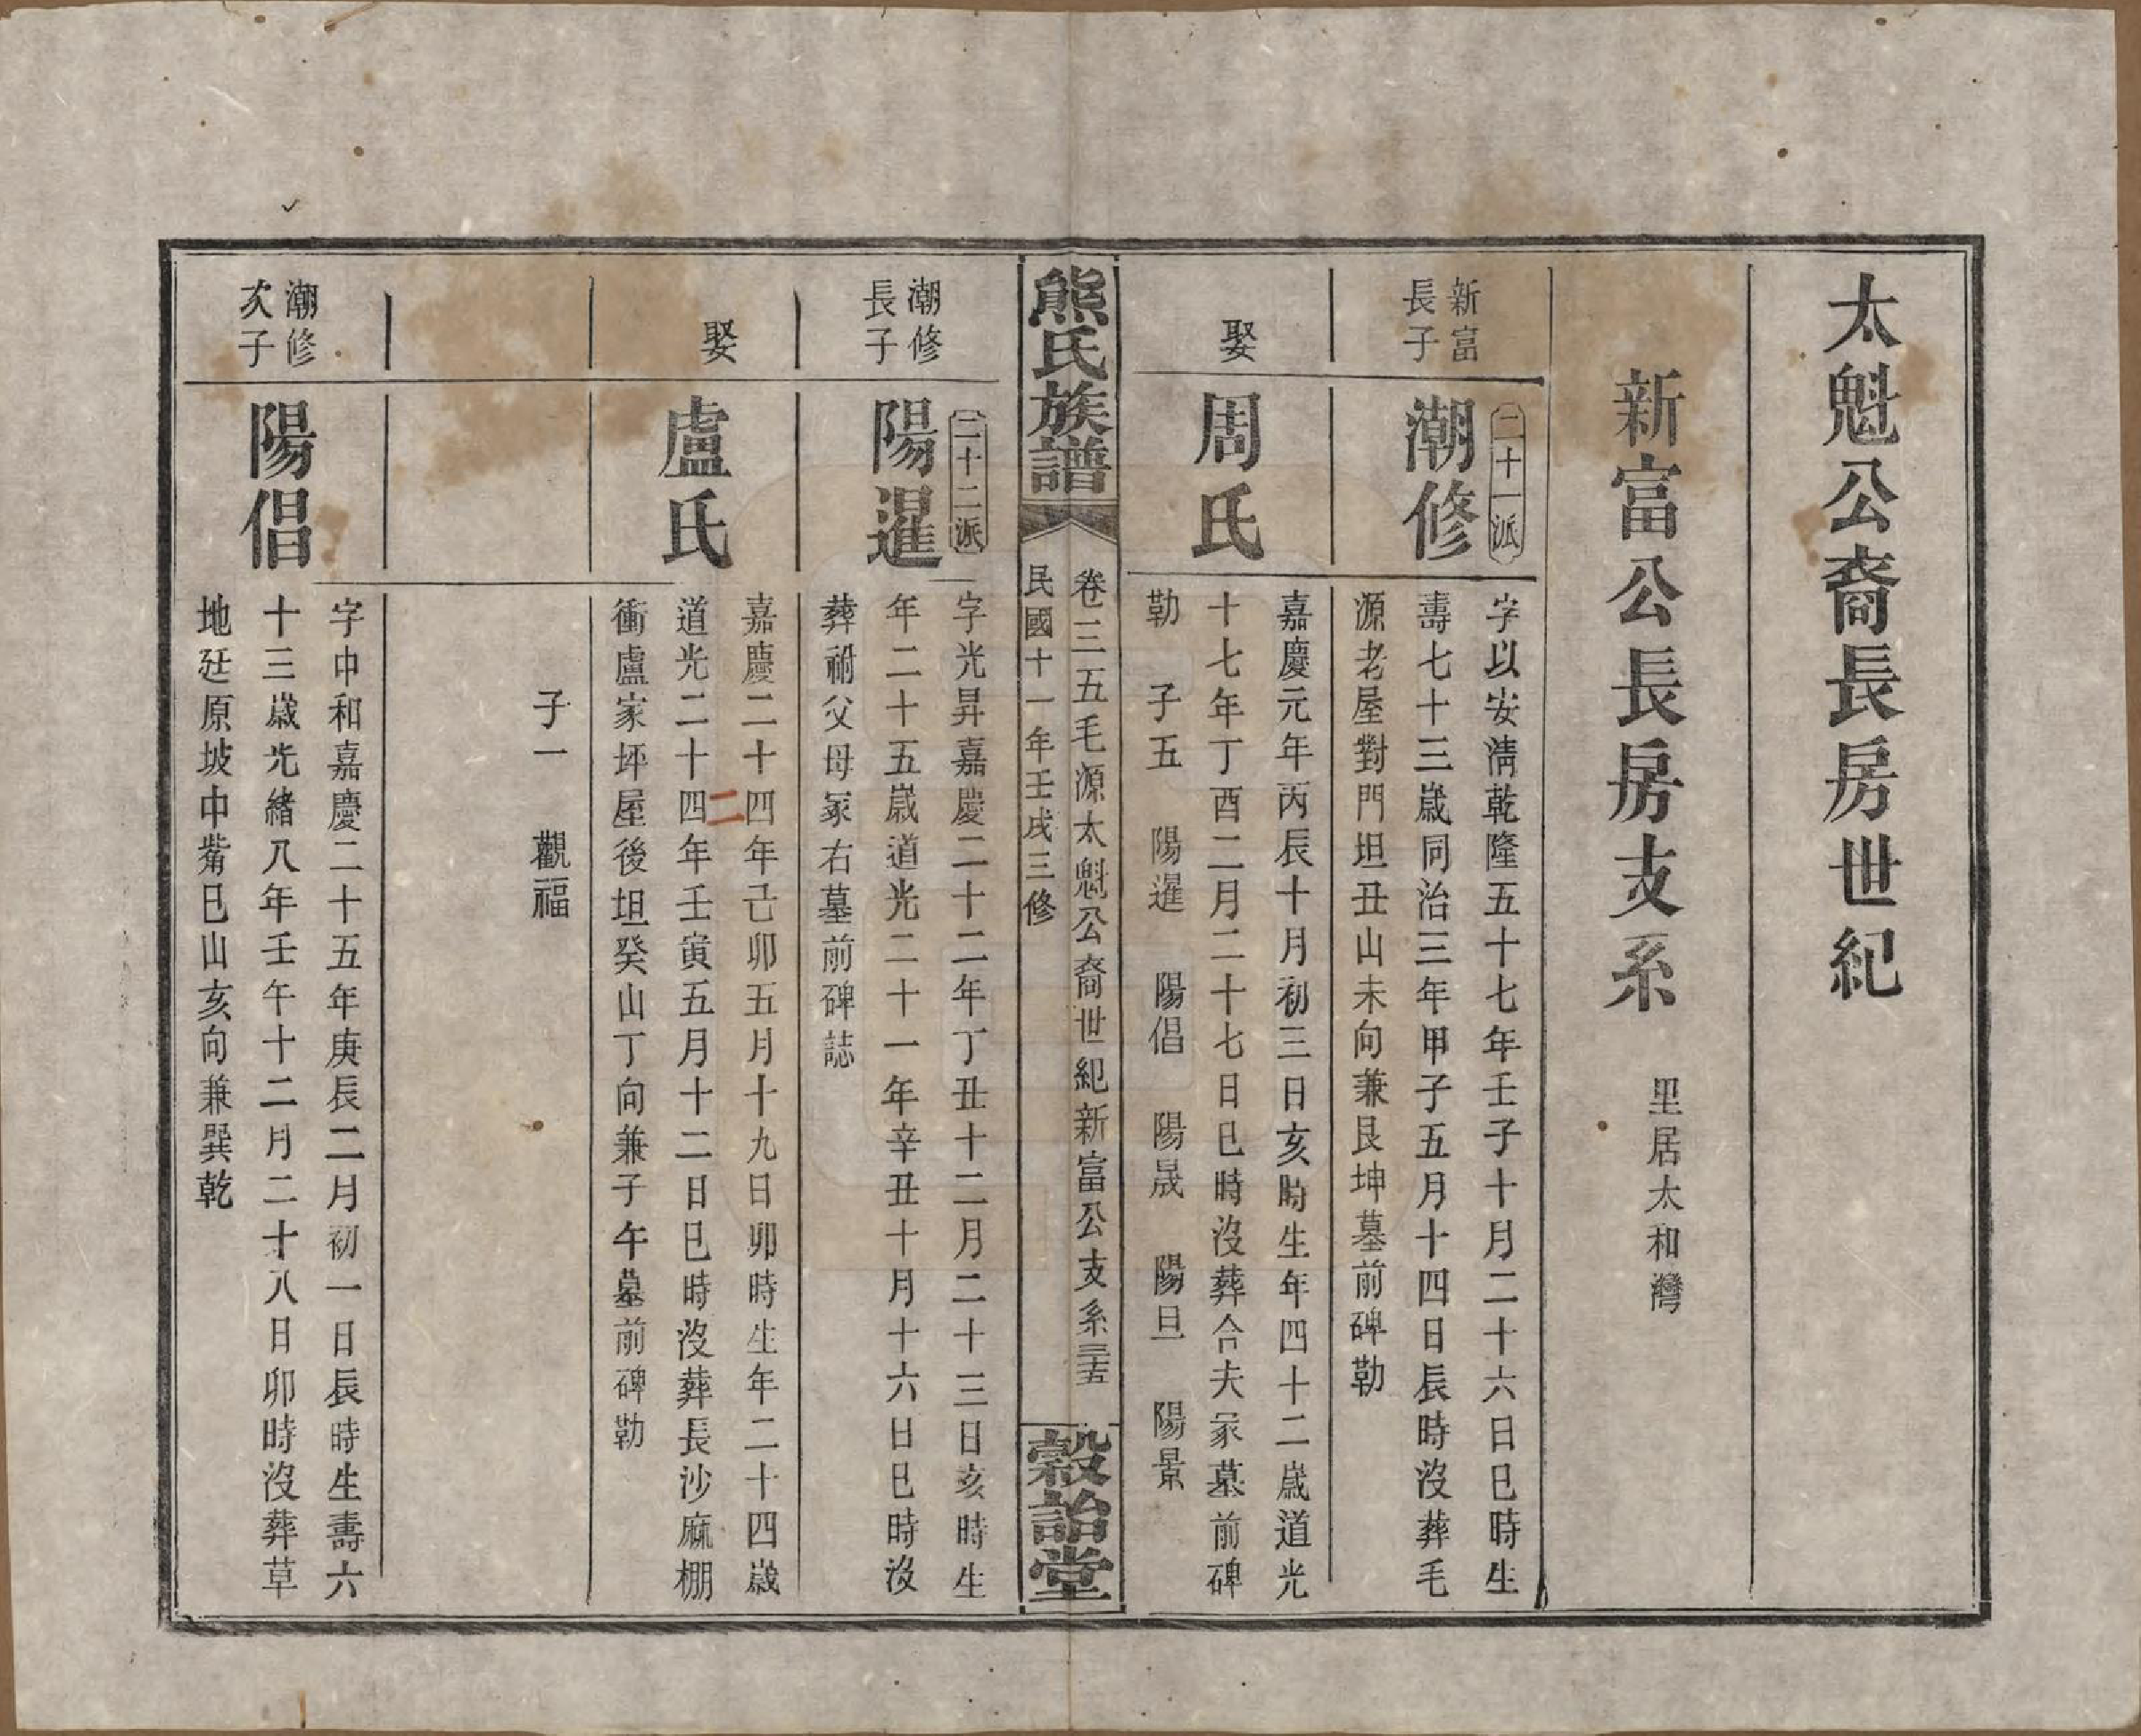 太魁公裔長房世紀
新富公長房支系
里居太和灣
新富
長子
二十一派
潮修
字以安清乾隆五十七年壬子十月二十六日巳時生
壽七十三歲同治三年甲子五月十四日辰時沒葬毛
源老屋對門坦丑山未向兼艮坤墓前碑勒
娶
周氏
嘉慶元年丙辰十月初三日亥時生年四十二歲道光
十七年丁酉二月二十七日巳時沒葬合夫冢墓前碑
勒 子五 陽暹 陽倡 陽晟 陽旦 陽景
熊氏族譜
卷三五毛源太魁公裔世紀新富公支系
民國十一年壬戌三修
穀詒堂
潮修
長子
二十二派
陽暹
字光昇嘉慶二十二年丁丑十二月二十三日亥時生
年二十五歲道光二十一年辛丑十月十六日巳時沒
葬祔父母冢右墓前碑誌
娶
盧氏
嘉慶二十四年己卯五月十九日卯時生年二十四歲
道光二十四年壬寅五月十二日巳時沒葬長沙麻棚
二
衝盧家坪屋後坦癸山丁向兼子午墓前碑勒
子一 觀福
潮修
次子
陽倡
字中和嘉慶二十五年庚長二月初一日辰時生壽六
十三歲光緒八年壬午十二月二十八日卯時沒葬草
地𡉏原坡中觜巳山亥向兼巽乾